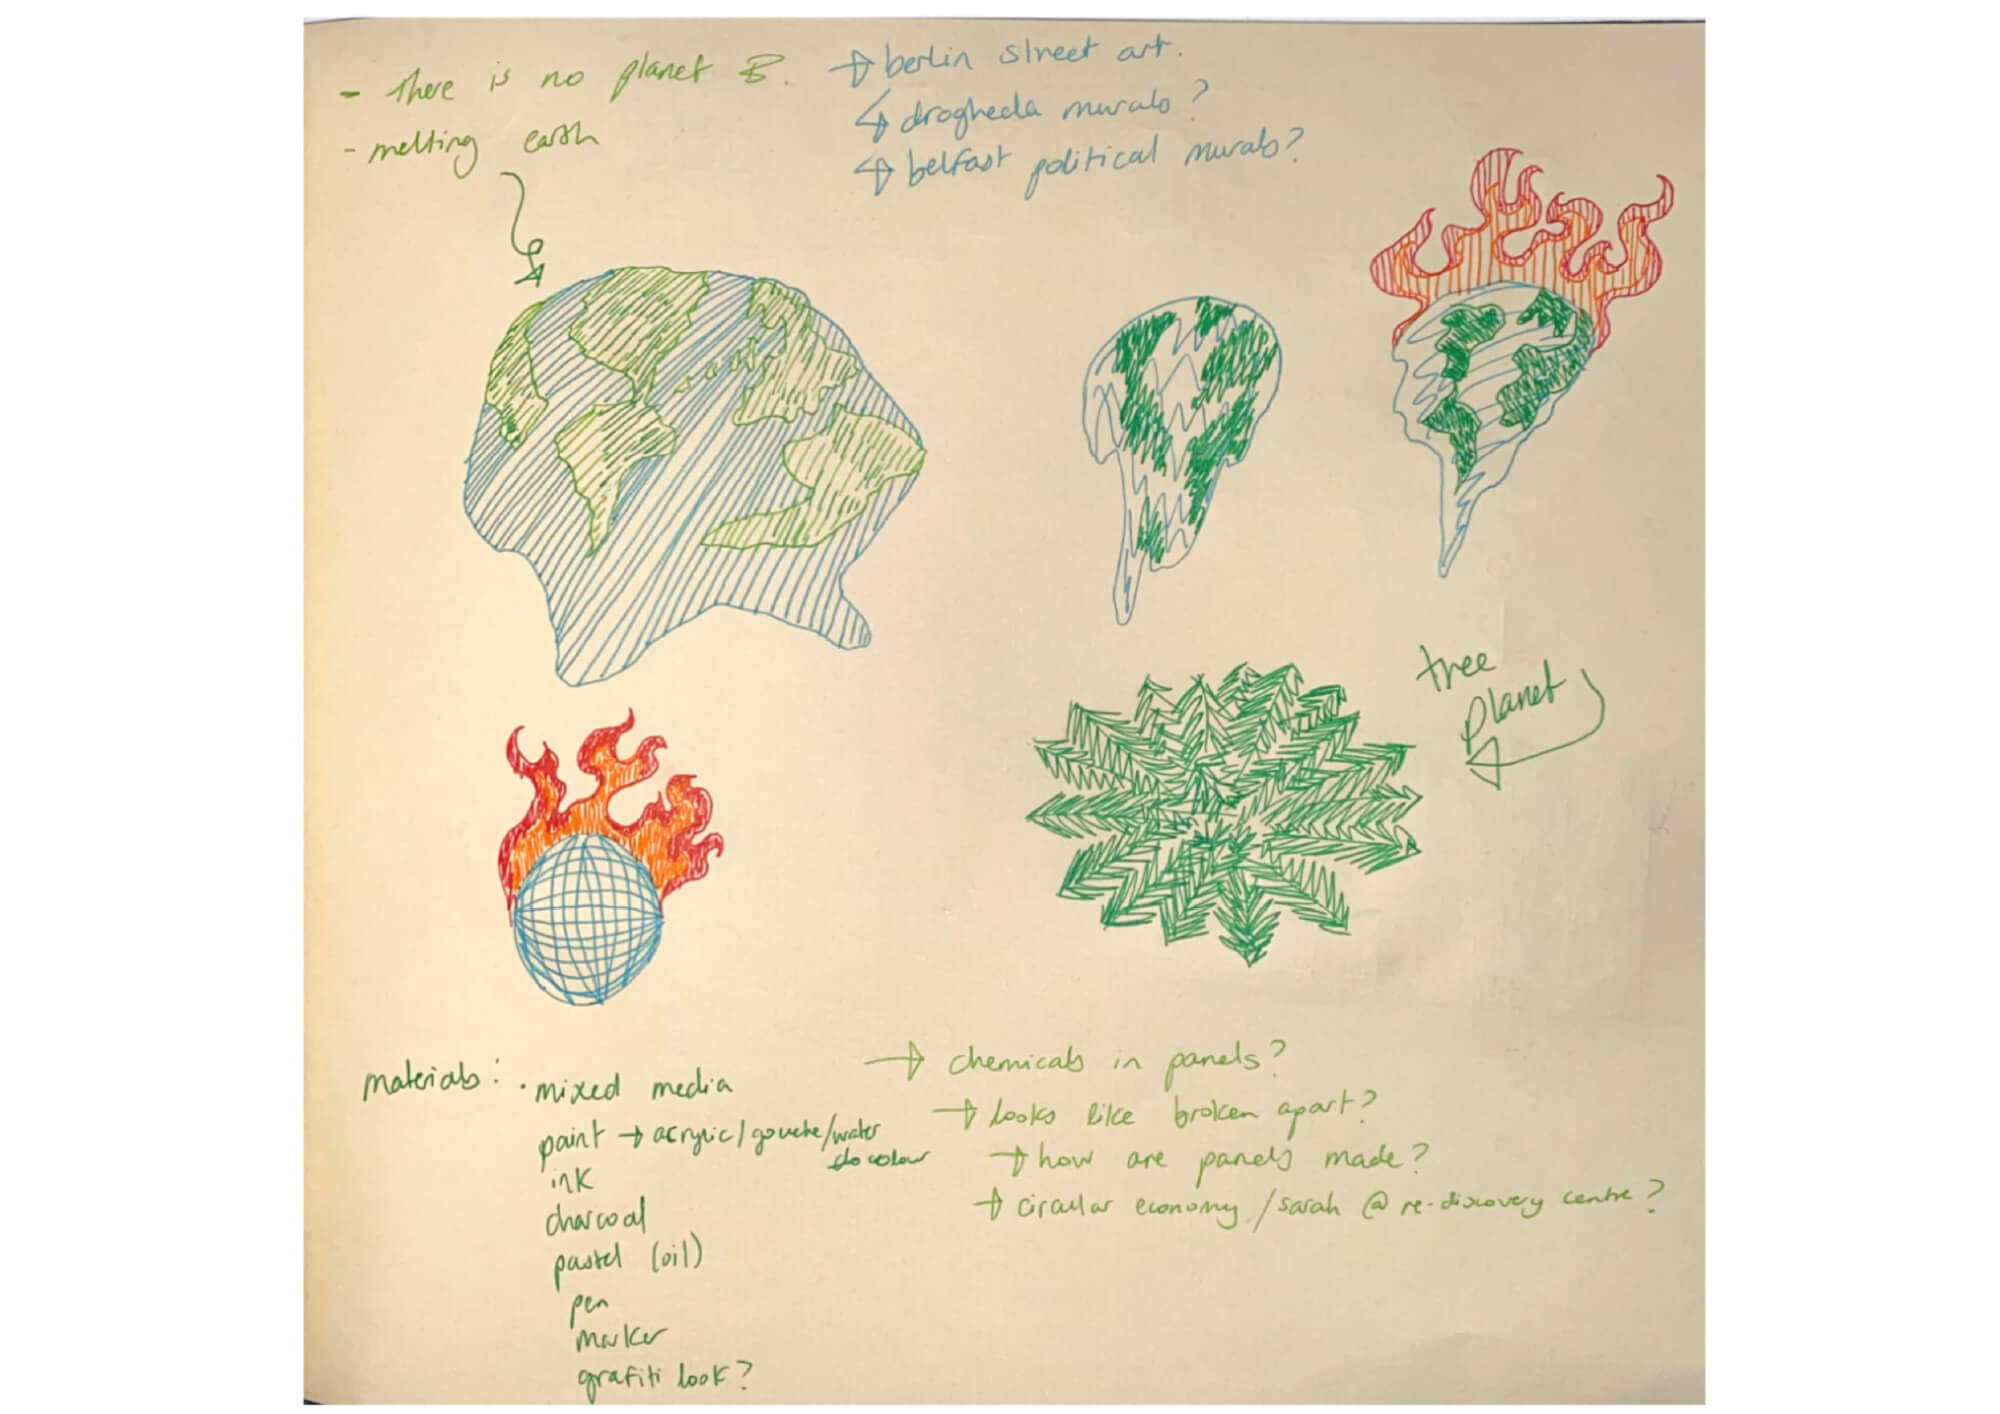 - There is no planet B.
- melting earth
→ berlin street art.
↳ drogheda murals?
↳ belfast political murals?
tree
planet
materials: · mixed media
paint → acrylic/gouche/water
colour
ink
charcoal
pastel (oil)
pen
marker
grafiti look?
→ chemicals in panels?
→ looks like broken apart?
→ how are panels made?
→ circular economy/sarah @ re-discovery centre?